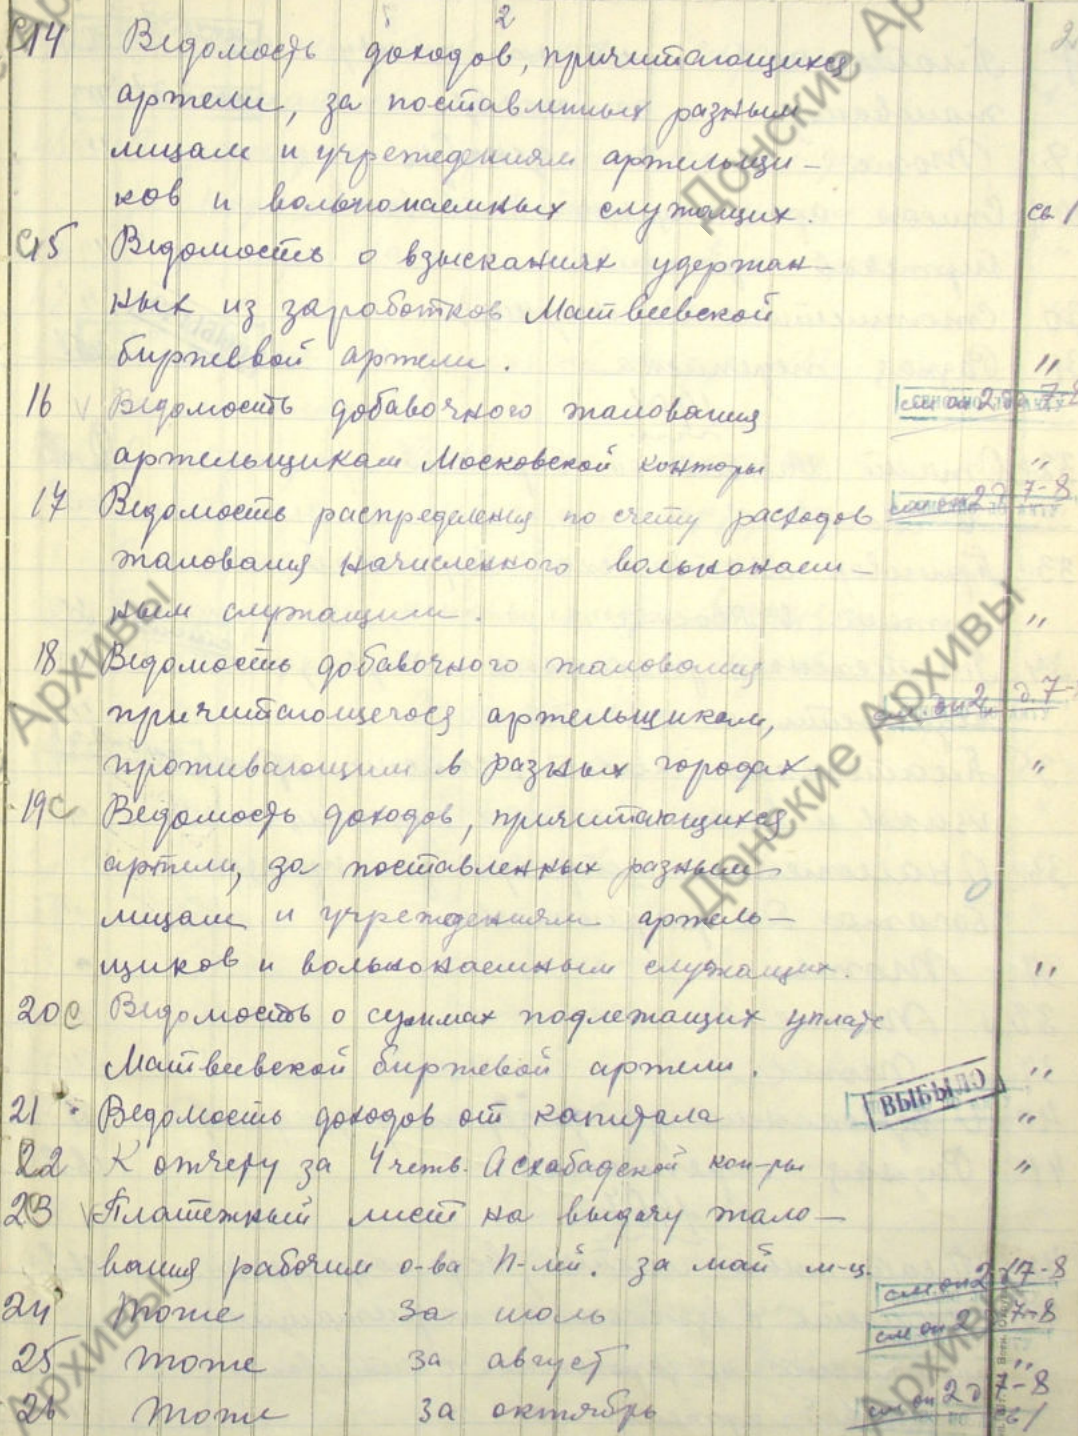 2
14 Ведомость доходов, причитающихся
артели, за поставленных разным
лицам и учреждениям артельщи-
ков и вольнонаемных служащих. св 1
15 Ведомость о взысканиях удержан-
ных из заработков Матвеевской
биржевой артели. "
16 Ведомость добавочного жалования см оп 2 д 7-8
артельщикам Московской конторы "
17 Ведомость распределения по счету расходов см оп 2 д 7-8
жалования начисленного вольнонаем-
ным служащим. "
18 Ведомость добавочного жалования
причитающегося артельщикам, см. оп 2, д. 7-
проживающим в разных городах "
19 с Ведомость доходов, причитающихся
артели, за поставленных разным
лицам и учреждениям артель-
щиков и вольнонаемным служащих. "
20 с Ведомость о суммах подлежащих уплате
Матвеевской биржевой артели. "
21 Ведомость доходов от капитала ВЫБЫЛО "
22 К отчету за 4 четв. Асхабадской кон-ры "
23 Платежный лист на выдачу жало-
вания рабочим о-ва П-лей. за май м-ц. см оп 2 д 7-8
24 тоже за июль см оп 2 7-8
25 тоже за август "
26 тоже за октябрь см оп 2 д 7-8 св 1
Донские Архивы
Архивы
Донские Архивы
Архивы